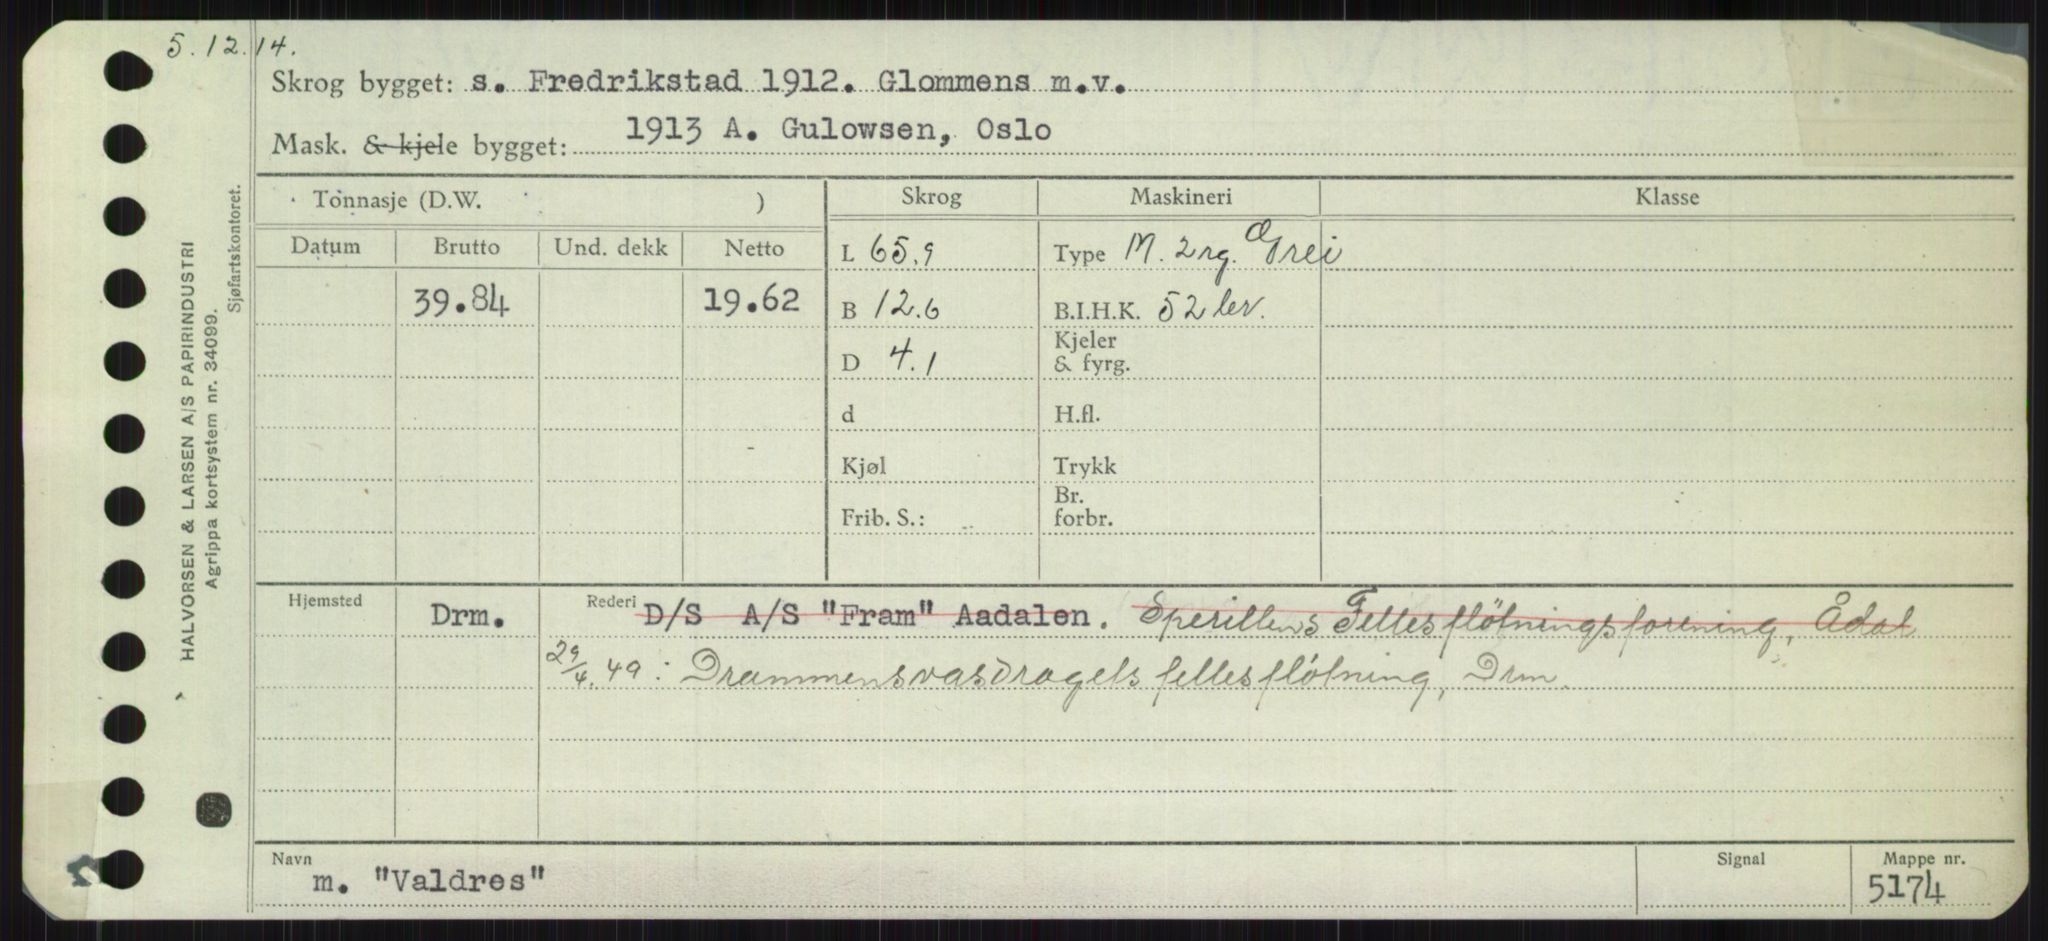 5.12.14.
Skrog bygget: s. Fredrikstad 1912. Glommens m.v.
Mask. & kjele bygget: 1913 A. Gulowsen, Oslo
Tonnasje (D.W. ) Skrog Maskineri Klasse
Datum Brutto Und. dekk Netto
L 65,9 Type M. 2 rg. Grei
39.84 19.62 B 12.6 B.I.H.K. 52 lev.
D 4.1 Kjeler & fyrg.
d H.fl.
Kjøl Trykk
Frib. S.: Br. forbr.
Hjemsted Drm. Rederi D/S A/S "Fram" Aadalen. Sperillens Fellesfløtningsforening, Ådal
29/4.49: Drammensvasdragets fellesfløtning, Drm.
Navn m. "Valdres" Signal Mappe nr. 5174
HALVORSEN & LARSEN A/S PAPIRINDUSTRI
Agrippa kortsystem nr. 34099.
Sjøfartskontoret.